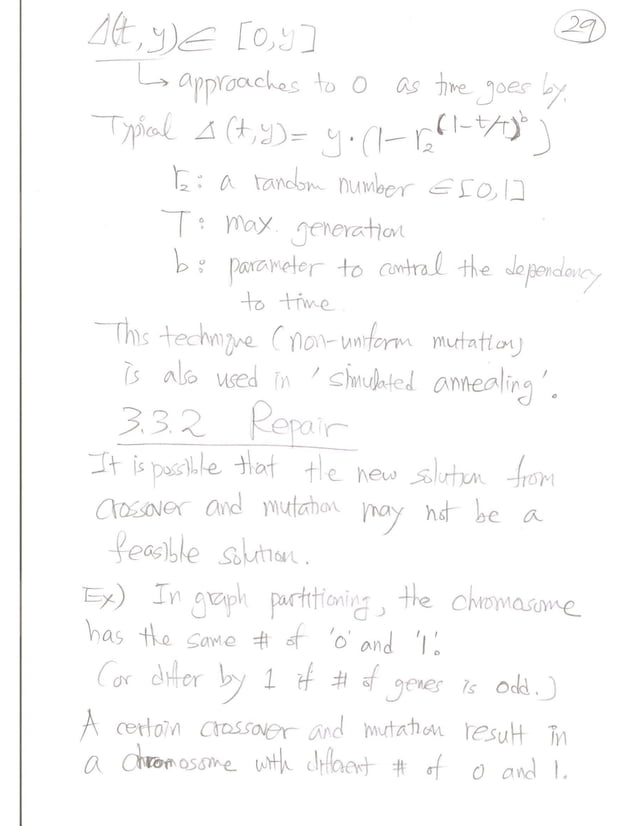 29
Δ(t, y) ∈ [0, y]
↳ approaches to 0 as time goes by.
Typical Δ(t, y) = y · (1 - r₂^(1 - t/T)^b)
r₂ : a random number ∈ [0, 1]
T : max. generation
b : parameter to control the dependency
to time
This technique (non-uniform mutation)
is also used in 'simulated annealing'.
3.3.2 Repair
It is possible that the new solution from
crossover and mutation may not be a
feasible solution.
Ex) In graph partitioning, the chromosome
has the same # of '0' and '1'.
(or differ by 1 if # of genes is odd.)
A certain crossover and mutation result in
a chromosome with different # of 0 and 1.